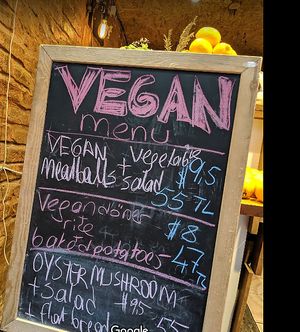 VEGAN
menu
VEGAN vegetable
meatballs + salad $9,5
55 TL
Vegan döner $8
rice
baked potatoes 47
OYSTER MUSHROOM
+ salad $9,5
+ flat bread 55
Google